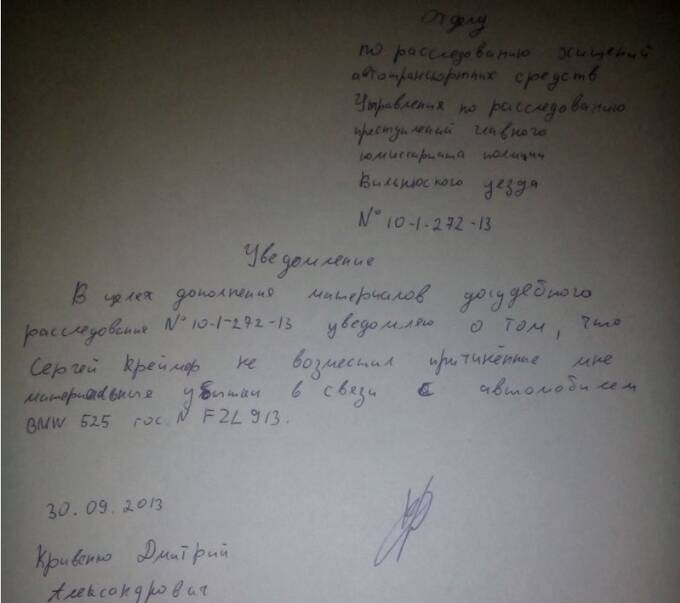 Отделу
по расследованию хищений
автотранспортных средств
Управления по расследованию
преступлений главного
комиссариата полиции
Вильнюского уезда
№ 10-1-272-13
Уведомление
В целях дополнения материалов досудебного
расследования № 10-1-272-13 уведомляю о том, что
Сергей Креймер не возместил причинённые мне
материальные убытки в связи с автомобилем
BMW 525 гос. N FZL 913.
30.09.2013
Кривенко Дмитрий
Александрович